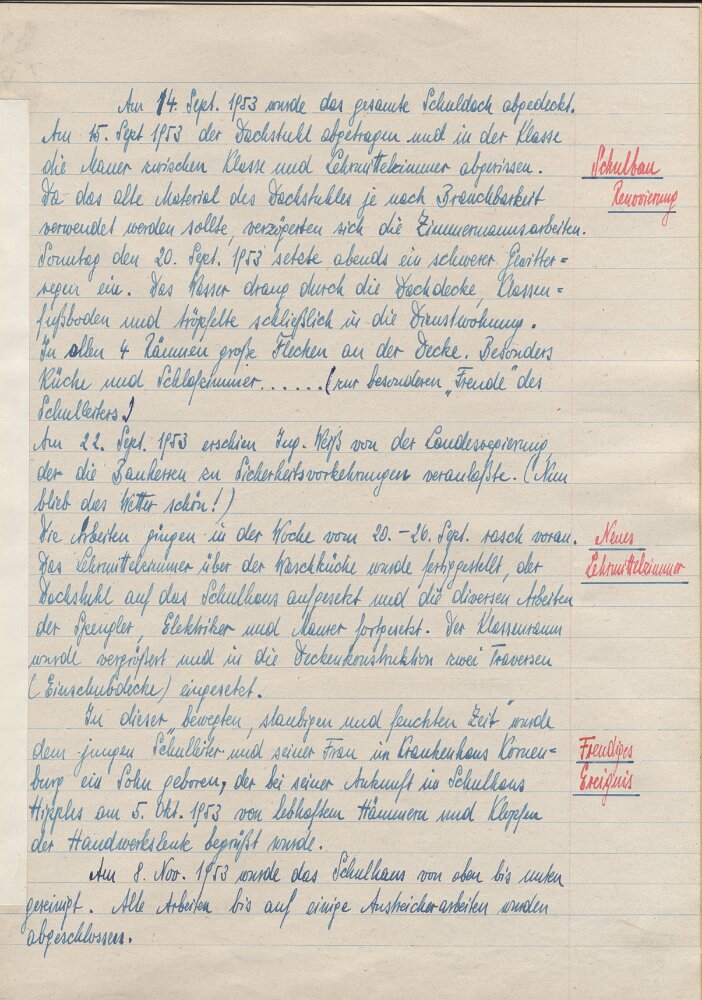 Am 14. Sept. 1953 wurde das gesamte Schuldach abgedeckt.
Am 15. Sept 1953 der Dachstuhl abgetragen und in der Klasse
die Mauer zwischen Klasse und Lehrmittelzimmer abgerissen.
Schulbau
Renovierung
Da das alte Material des Dachstuhles je nach Brauchbarkeit
verwendet werden sollte, verzögerten sich die Zimmermannsarbeiten.
Sonntag den 20. Sept. 1953 setzte abends ein schwerer Gewitter=
regen ein. Das Wasser drang durch die Dachdecke, Klassen=
fußboden und tröpfelte schließlich in die Dienstwohnung.
In allen 4 Räumen große Flecken an der Decke. Besonders
Küche und Schlafzimmer......(zur besonderen „Freude" des
Schulleiters)
Am 22. Sept. 1953 erschien Ing. Weiß von der Landesregierung
der die Bauherren zu Sicherheitsvorkehrungen veranlaßte. (Nun
blieb das Wetter schön!)
Die Arbeiten gingen in der Woche vom 20.-26. Sept. rasch voran.
Neues
Lehrmittelzimmer
Das Lehrmittelzimmer über der Waschküche wurde fertiggestellt, der
Dachstuhl auf das Schulhaus aufgesetzt und die diversen Arbeiten
der Spengler, Elektriker und Maurer fortgesetzt. Der Klassenraum
wurde vergrößert und in die Deckenkonstruktion zwei Traversen
(Einschubdecke) eingesetzt.
In dieser „bewegten, staubigen und feuchten Zeit" wurde
dem jungen Schulleiter und seiner Frau im Krankenhaus Korneu=
Freudiges
Ereignis
burg ein Sohn geboren, der bei seiner Ankunft im Schulhaus
Hipples am 5. Okt. 1953 von lebhaftem Hämmern und Klopfen
der Handwerksleute begrüßt wurde.
Am 8. Nov. 1953 wurde das Schulhaus von oben bis unten
gereinigt. Alle Arbeiten bis auf einige Anstreicherarbeiten wurden
abgeschlossen.